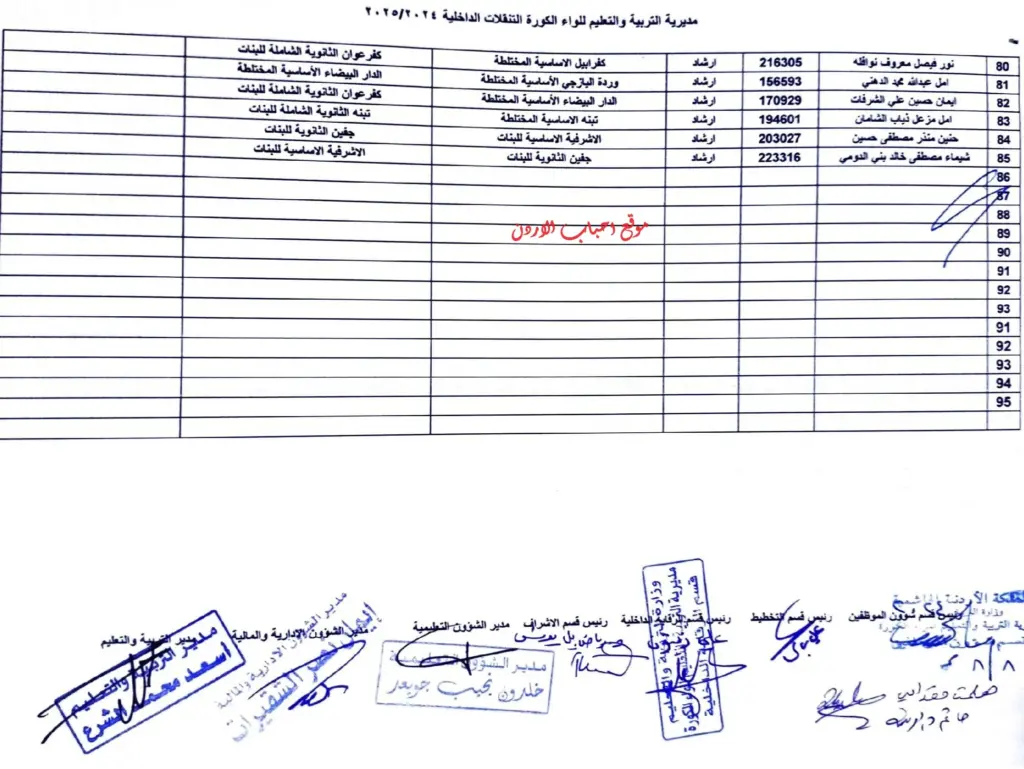 مديرية التربية والتعليم للواء الكورة التنقلات الداخلية ٢٠٢٥/٢٠٢٤
80 نور فيصل معروف نوافله 216305 ارشاد كفرابيل الاساسية المختلطة كفرعوان الثانوية الشاملة للبنات
81 امل عبدالله محمد الدهني 156593 ارشاد وردة اليازجي الأساسية المختلطة الدار البيضاء الأساسية المختلطة
82 ايمان حسين علي الشرفات 170929 ارشاد الدار البيضاء الأساسية المختلطة كفرعوان الثانوية الشاملة للبنات
83 امل مزعل ذياب الشامان 194601 ارشاد تبنه الاساسية المختلطة تبنه الثانوية الشاملة للبنات
84 حنين منذر مصطفى حسين 203027 ارشاد الاشرفية الاساسية للبنات جفين الثانوية للبنات
85 شيماء مصطفى خالد بني الدومي 223316 ارشاد جفين الثانوية للبنات الاشرفية الاساسية للبنات
86
87
88
موقع احباب الاردن
89
90
91
92
93
91
92
93
94
95
رئيس قسم شؤون الموظفين رئيس قسم التخطيط رئيس قسم الرقابة الداخلية رئيس قسم الاشراف مدير الشؤون التعليمية مدير الشؤون الإدارية والمالية مدير التربية والتعليم
وزارة التربية والتعليم
قسم الرقابة الداخلية
مدير الشؤون التعليمية
خلدون نجيب جويعد
مدير الشؤون الادارية والمالية
مدير التربية والتعليم
اسعد محمد الشرع